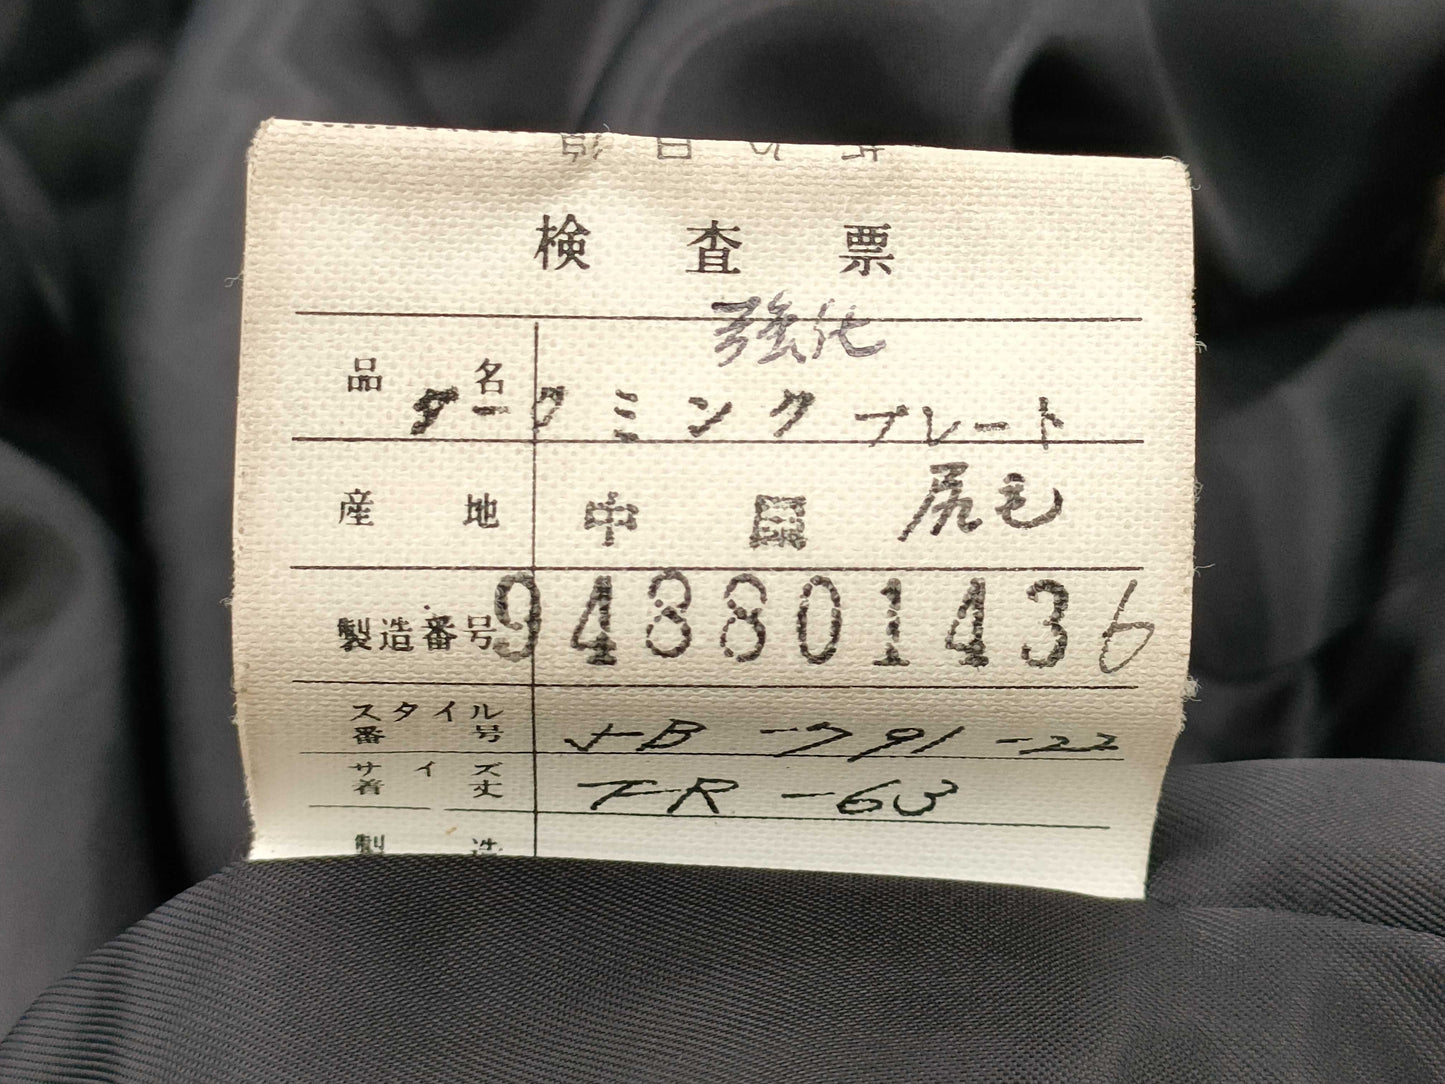 検査票
強化
品名 ダークミンクプレート
産地 中国 尻毛
製造番号 948801436
スタイル番号 JB-791-22
サイズ着丈 FR-63
製造